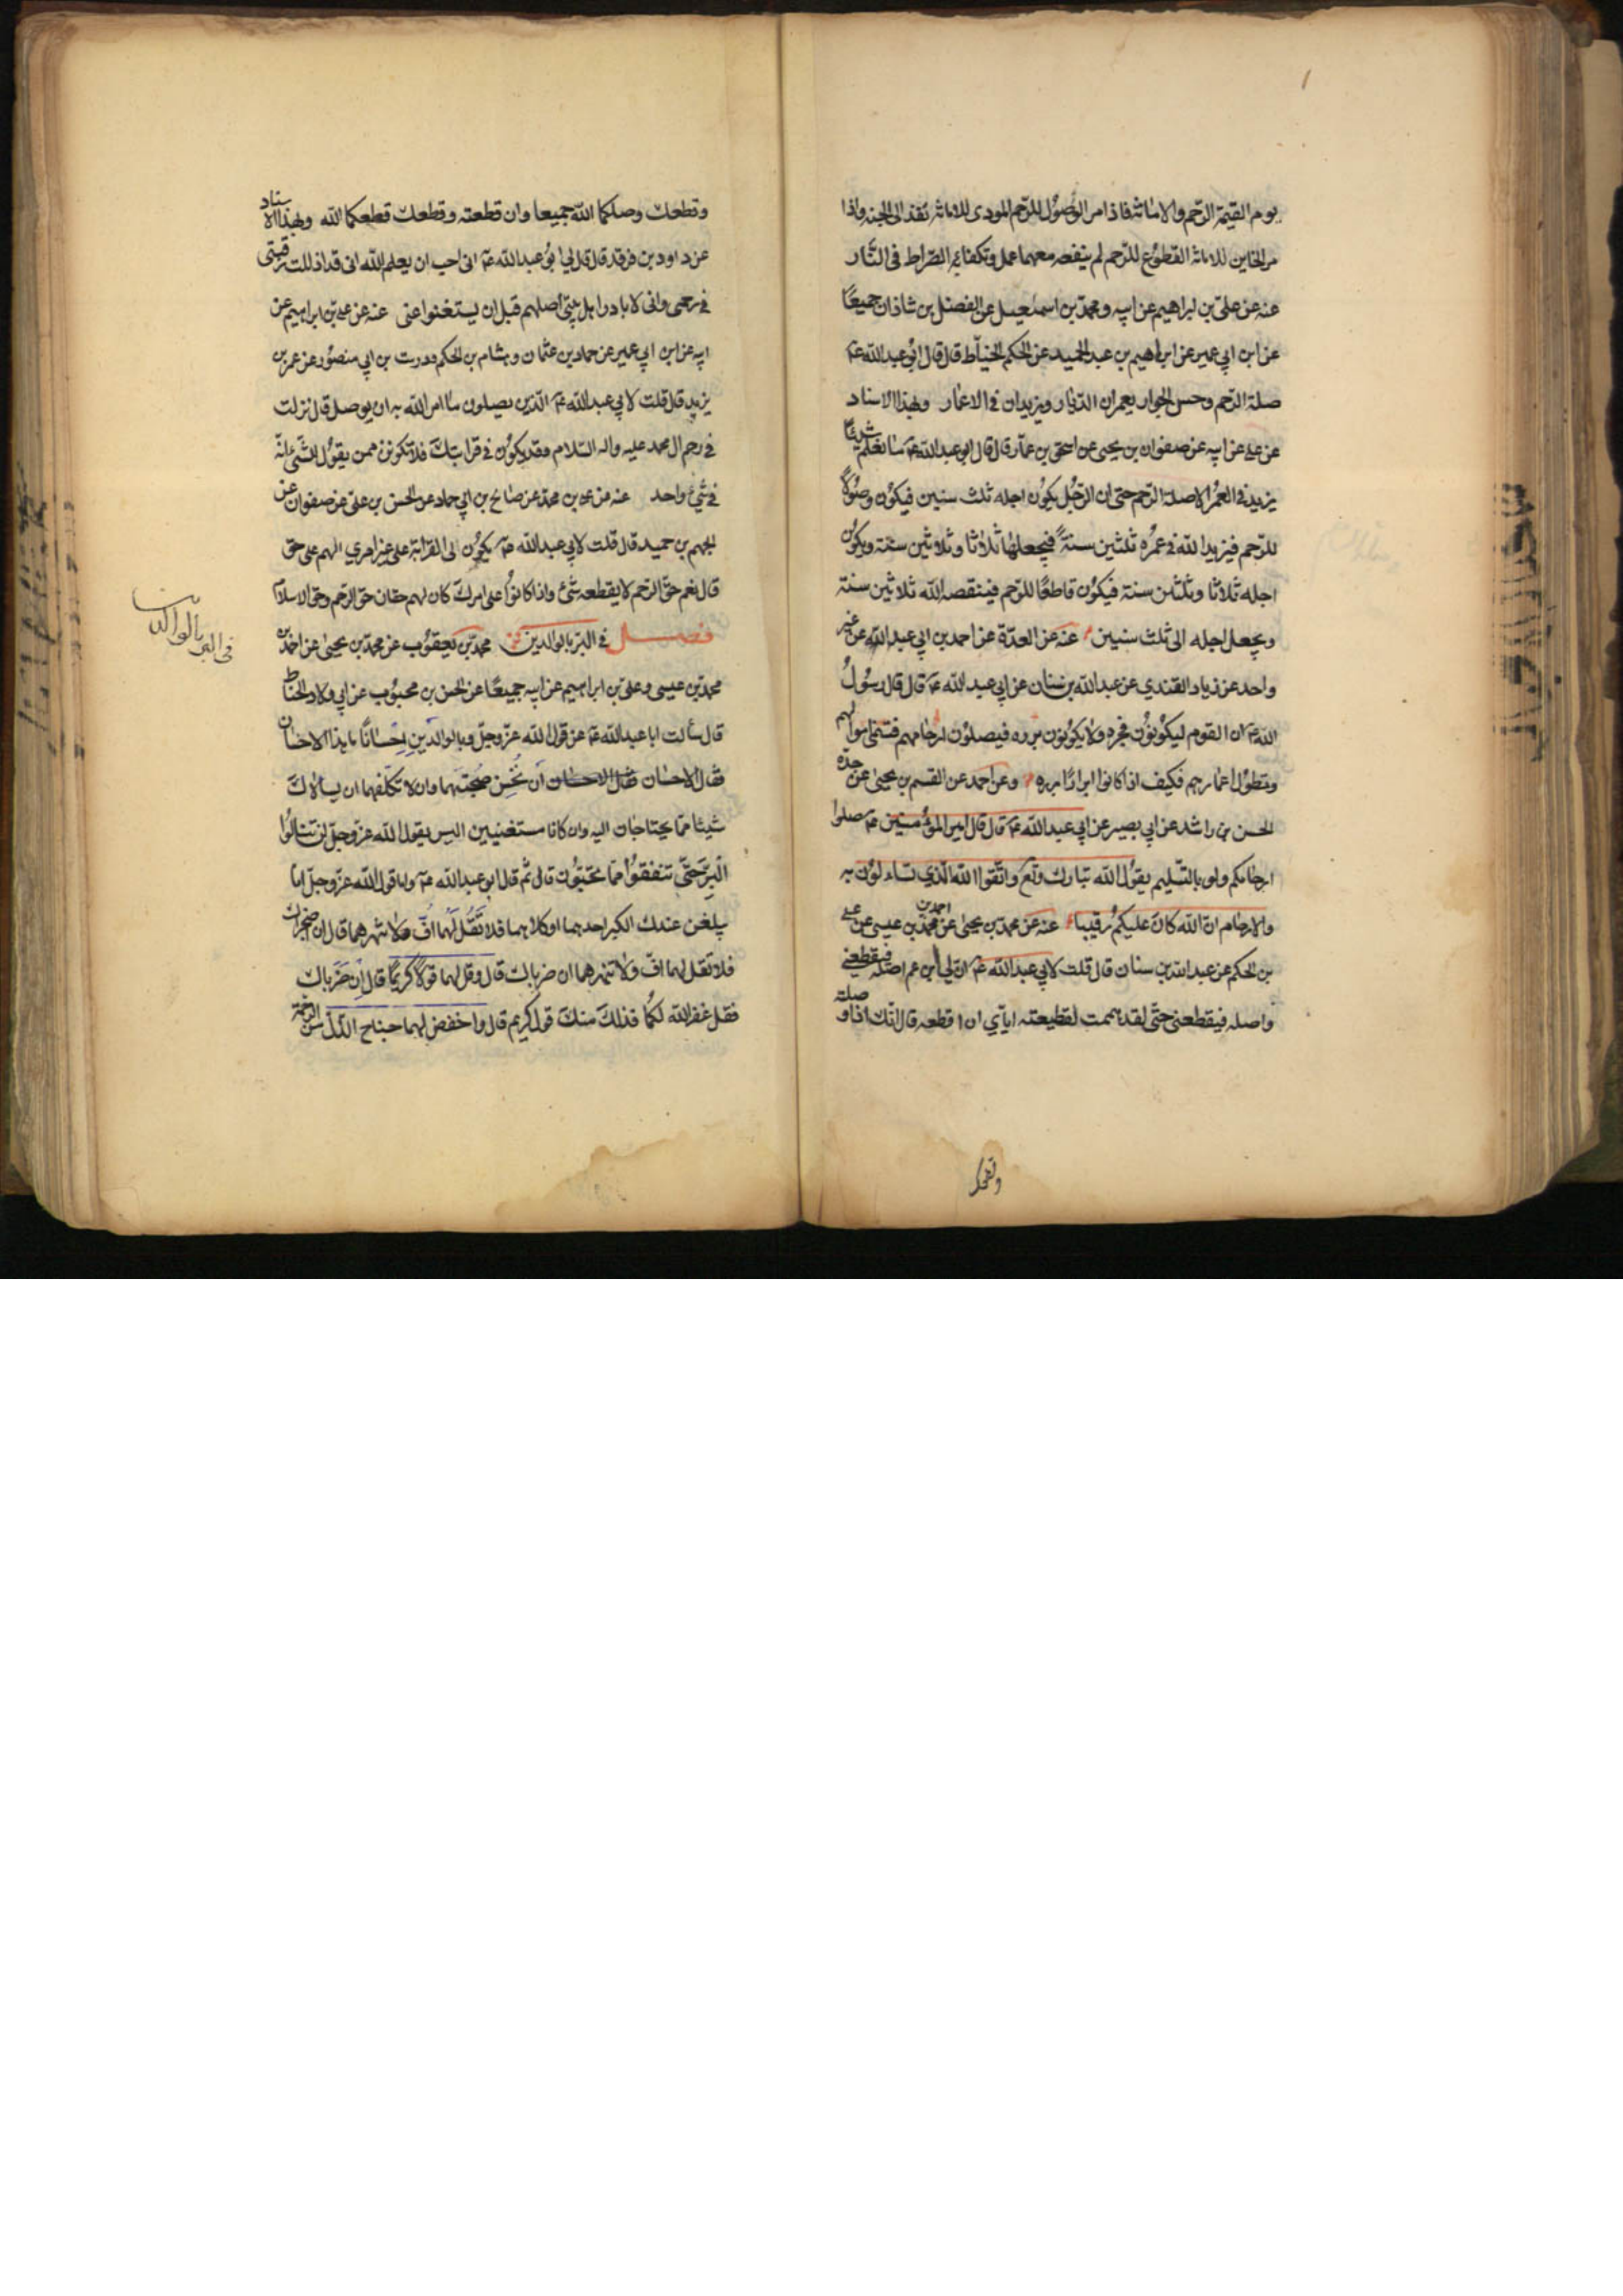 يوم القيمة الرّحم والامانة فاذا مر الوصُول للرّحم المودى للامانة نفذ الى الجنه واذا
مر الخاين للامانة القطوع للرّحم لم ينفعه معهما عمل وتكفا به الصّراط فى النّار
عنه عن علىّ بن ابراهيم عن ابيه و محمدّ بن اسمعيل عن الفضل بن شاذان جميعًا
عن ابن ابي عمير عن ابراهيم بن عبد الحميد عن الحكم الخيّاط قال قال ابُو عبد اللّه عم
صلة الرّحم وحسن الجوار يعمران الدّيار ويزيدان فى الاعمار وبهذا الاسناد
عن على عن ابيه عن صفوان بن يحيى عن اسحق بن عمّار قال قال ابو عبد اللّه عم ما نعلم شيئًا
يزيد فى العمُر الا صلة الرّحم حتى ان الرّجُل يكوُن اجله ثلث سنين فيكوُن وصُولاً
للرّحم فيزيد اللّه فى عمُره ثلثين سنةً فيجعلها ثلاثا وثلاثين سنة ويكوُن
اجله ثلاثا وثلثين سنة فيكوُن قاطعًا للرّحم فينقصه اللّه ثلاثين سنة
ويجعل اجله الى ثلث سنين عنه عن العدّة عن احمد بن ابي عبد اللّه عن غير
واحد عن زياد القندي عن عبد اللّه بن سنان عن ابي عبد اللّه عم قال قال رسُولُ
اللّه ان القوم ليكوُنوُن فجره ولا يكوُنوُن برره فيصلوُن ارحامهم فتنمى اموالهم
وتطوُل اعمارهم فكيف اذا كانوا ابرارًا برره وعن احمد عن القسم بن يحيىٰ عن جدّه
الحسن بن راشد عن ابي بصير عن ابي عبد اللّه عم قال قال امير المؤمنين عم صلوا
ارحامكم ولو بالتّسليم يقوُل اللّه تبارك وتع واتّقوا اللّه الّذي تساءلوُن به
والارحام انّ اللّه كان عليكمُ رقيبا عنه عن محمدّ بن يحيىٰ عن احمد بن محمدّ بن عيسى عن على
بن الحكم عن عبد اللّه بن سنان قال قلت لابي عبد اللّه عم انّ لي ابن عم اصله فيقطعنى
واصله فيقطعنى حتّى لقد هممت لقطيعته اياّي ان اقطعه قال انّك اذا وصلته
وقطعك
وقطعك وصلكما اللّه جميعا وان قطعته وقطعك قطعكما اللّه وبهذا الاسناد
عن داود بن فرقد قال قال لي ابوُ عبد اللّه عم انى احب ان يعلم اللّه انى قد اذللت رقبتى
فى رحمى وانى لابادر اهل بيتى اصلهم قبل ان يستغنوا عنى عنه عن على بن ابراهيم عن
ابيه عن ابن ابي عمير عن حماد بن عثمان وهشام بن الحكم ودرست بن ابي منصوُر عن عمر بن
يزيد قال قلت لابي عبد اللّه عم الّذين يصلون ما امر اللّه به ان يوصل قال نزلت
فى رحم ال محمد عليه واله السّلام وقد يكوُن فى قرابتكَ فلا تكونن ممن يقوُل للشّىء انّه
فى شىء واحد عنه عن على بن محمدّ عن صالح بن ابي حماد عن الحسن بن علىّ عن صفوان عن
الجهم بن حميد قال قلت لابي عبد اللّه عم يكوُن لى القرابة على غير امري الهم على حق
قال نعم حقّ الرحم لا يقطعه شىء واذا كانوُا على امركَ كان لهم حقان حق الرّحم وحق الاسلام
فصل فى البرّ بالوالدين محمدّ بن يعقوُب عن محمدّ بن يحيىٰ عن احمد بن
محمدّ بن عيسى وعلى بن ابراهيم عن ابيه جميعًا عن الحسن بن محبوُب عن ابي ولاد الحناط
قال سألت ابا عبد اللّه عم عن قول اللّه عزّ وجلّ وبالوالدَينِ اِحسَانًا ما هذا الاحسان
فقال الاحسان ان تُحسِن صُحبتَهما وان لا تكلّفهما ان يسألاكَ
شيئا ممّا يحتاجان اليه وان كانا مستغنيين اليس يقول اللّه عزّ وجلّ لن تنالوُا
البِرَّ حَتّىٰ تنفقوُا ممّا تحبّوُن قال ثمّ قال ابو عبد اللّه عم واما قول اللّه عزّ وجلّ امّا
يبلغن عندك الكبر احدهما او كلاهما فلا تَقُل لَهُما اُفّ ولا تنهرهما قال ان اضجراك
فلا تقل لهما افّ ولا تنهرهما ان ضرباك قال وقل لهما قولاً كريمًا قال ان ضَرَباك
فقل غفر اللّه لكُما فذلكَ منكَ قول كريم قال واخفض لهما جناح الذّلّ من الرّحمة
فى البر بالوالدين